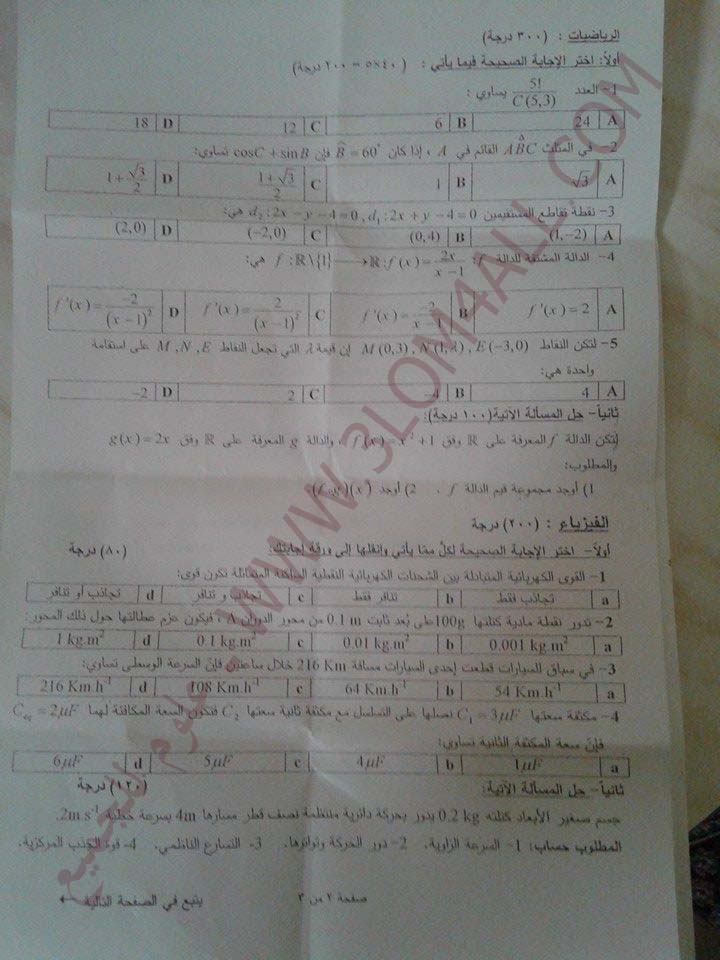 الرياضيات : (٣٠٠ درجة)
أولاً: اختر الإجابة الصحيحة فيما يأتي : (٥×٤٠ = ٢٠٠ درجة)
1- العدد 5! / C(5,3) يساوي :
A 24 B 6 C 12 D 18
2- في المثلث ABC القائم في A ، إذا كان B̂ = 60° فإن cosC + sinB تساوي:
A √3 B 1 C (1+√3)/2 D 1+√3/2
3- نقطة تقاطع المستقيمين d₁ : 2x + y − 4 = 0 , d₂ : 2x − y − 4 = 0 هي:
A (1,−2) B (0,4) C (−2,0) D (2,0)
4- الدالة المشتقة للدالة f : f : ℝ\{1} ⟶ ℝ : f(x) = 2x/(x−1) هي:
A f'(x) = 2 B f'(x) = −2/(x−1) C f'(x) = 2/(x−1)² D f'(x) = −2/(x−1)²
5- لتكن النقاط M(0,3) , N(1,λ) , E(−3,0) إن قيمة λ التي تجعل النقاط M , N , E على استقامة
واحدة هي:
A 4 B −4 C 2 D −2
ثانياً- حل المسألة الآتية (١٠٠ درجة):
لتكن الدالة f المعرفة على ℝ وفق f(x) = x² + 1 ، والدالة g المعرفة على ℝ وفق g(x) = 2x
والمطلوب:
1) أوجد مجموعة قيم الدالة f . 2) أوجد (f∘g)(x)
الفيزياء : (٢٠٠) درجة
أولاً- اختر الإجابة الصحيحة لكل مما يأتي وانقلها إلى ورقة إجابتك: (٨٠) درجة
1- القوى الكهربائية المتبادلة بين الشحنات الكهربائية النقطية الساكنة المتماثلة تكون قوى:
a تجاذب فقط b تنافر فقط c تجاذب و تنافر d تجاذب أو تنافر
2- تدور نقطة مادية كتلتها 100g على بُعد ثابت 0.1 m من محور الدوران Δ ، فيكون عزم عطالتها حول ذلك المحور:
a 0.001 kg.m² b 0.01 kg.m² c 0.1 kg.m² d 1 kg.m²
3- في سباق للسيارات قطعت إحدى السيارات مسافة 216 Km خلال ساعتين فإنّ السرعة الوسطى تساوي:
a 54 Km.h⁻¹ b 64 Km.h⁻¹ c 108 Km.h⁻¹ d 216 Km.h⁻¹
4- مكثفة سعتها C₁ = 3μF نصلها على التسلسل مع مكثفة ثانية سعتها C₂ فتكون السعة المكافئة لهما Ceq = 2μF
فإنّ سعة المكثفة الثانية تساوي:
a 1μF b 4μF c 5μF d 6μF
ثانياً- حل المسألة الآتية: (١٢٠) درجة
جسم صغير الأبعاد كتلته 0.2 kg يدور بحركة دائرية منتظمة نصف قطر مسارها 4m بسرعة خطية 2m.s⁻¹.
المطلوب حساب: 1- السرعة الزاوية. 2- دور الحركة وتواترها. 3- التسارع الناظمي. 4- قوة الجذب المركزية.
صفحة ٢ من ٣
يتبع في الصفحة التالية ←
WWW.3LOM4ALL.COM - علوم للجميع